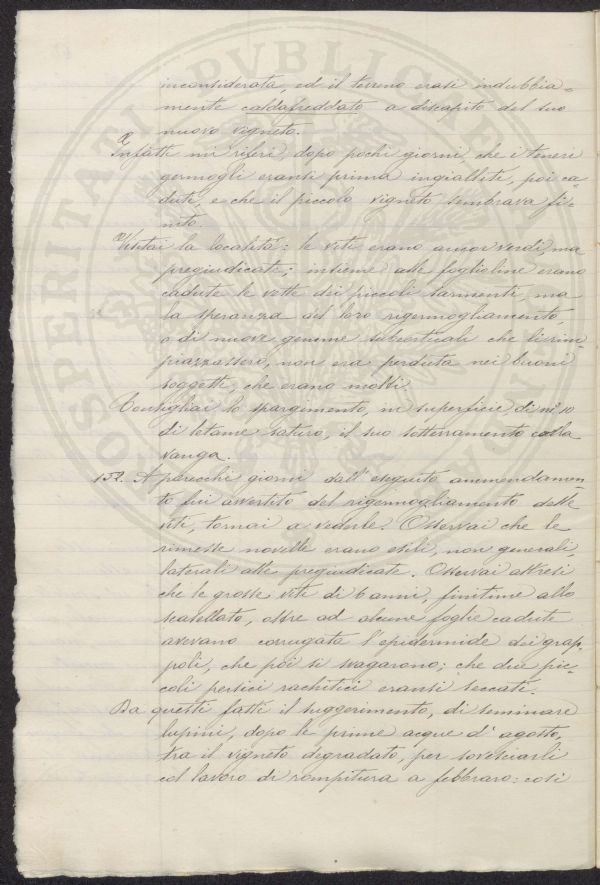 inconsiderata, ed il terreno erasi indubbia=
mente caldafreddato a discapito del suo
nuovo vigneto.
Infatti mi riferì, dopo pochi giorni, che i teneri
germogli eransi prima ingialliti, poi ca=
duti, e che il piccolo vigneto sembrava fi=
nito.
Visitai la località: le viti erano ancor verdi, ma
pregiudicate; insieme alle foglioline erano
cadute le vette dei piccoli sarmenti, ma
la speranza del loro rigermogliamento
o di nuove gemme che li rim
piazzassero, non era perduta nei buoni
soggetti, che erano molti.
Consigliai lo spargimento, in superficie di mc 10
di letame saturo, il suo sotterramento colla
vanga.
152. A parecchi giorni dall'eseguito ammendamen=
to fui avvertito del rigermogliamento delle
viti, tornai a vederle. Osservai che le
rimesse novelle erano esili, non generali,
laterali alle pregiudicate. Osservai altresì
che le grosse viti di 6 anni, finitime allo
scasellato, oltre ad alcune foglie cadute
avevano corrugata l'epidermide dei grap,
poli, che poi si svagarono; che due pic=
coli persici rachitici eransi seccati.
Da questi fatti il suggerimento, di seminare
lupini, dopo le prime acque d'agosto,
tra il vigneto degradato, per sovesciarli
col lavoro di rompitura a febbraro: così
PROSPERITATI PVBLICAE